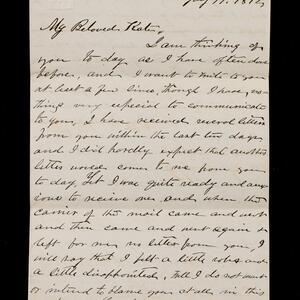 My Beloved Kate,
I am thinking of
you to day as I have often done
before, and I want to write to you
at least a few lines, though I have no-
thing very especial to communicate
to you, I have received several letters
from you within the last ten days
and I did hardly expect that another
letter would come to me from you
to day, yet I was quite ready and anx
ious to receive one, and when the
carrier of the mail came and went
and then came and went again &
left for me no letter from you, I
will say that I felt a little
a little disappointed, Well I do not want
or intend to blame you at all in this